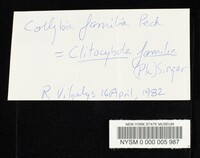 Collybia familia Peck
= Clitocybula familia
(Pk.) Singer
R. Vilgalys 16 April, 1982
NEW YORK STATE MUSEUM
NYSM 0 000 005 987